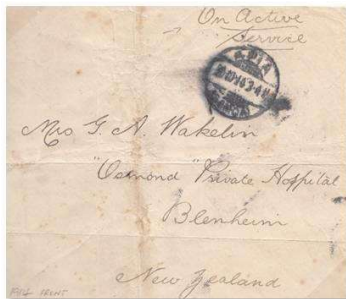 On Active
Service
APIA
Mrs G. A. Wakelin
"Osmond" Private Hospital
Blenheim
New Zealand